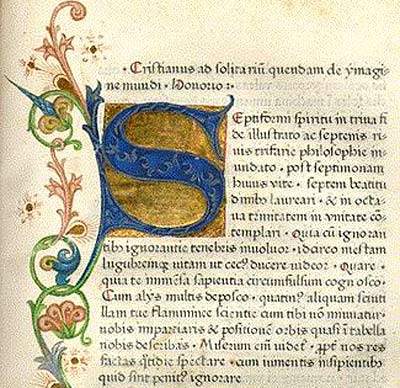 Cristianus ad solitariū quendam de ymagi
ne mundi · Honorio :·
Septiformi spiritu in trina fi
de illustrato ac septenis ri
uis trifarie philosophie in
undato · post septimonam
huius vite · septem beatitu
dinibꝰ laureari · & in octa
ua trinitatem in vnitate cō
templari · Quia cū ignoran
tibꝰ ignorantie tenebris inuoluor · idcirco mestam
lugubremqꝫ uitam ut cecꝰ ducere uideor · Quare ·
quia te immēsa sapientia circumfulsum cognosco ·
Cum alijs multis deposco · quatinꝰ aliquam scinti
llam tue flamminee scientie cum tibi nō minuatur
nobis impartiaris & positionē orbis quasi ī tabella
nobis describas · Miserum eīm uidet̉ · ꝓpt̉ nos res
factas qͦtidie spectare · cum iumentis insipientibꝰ
quid sint penitꝰ ignorare